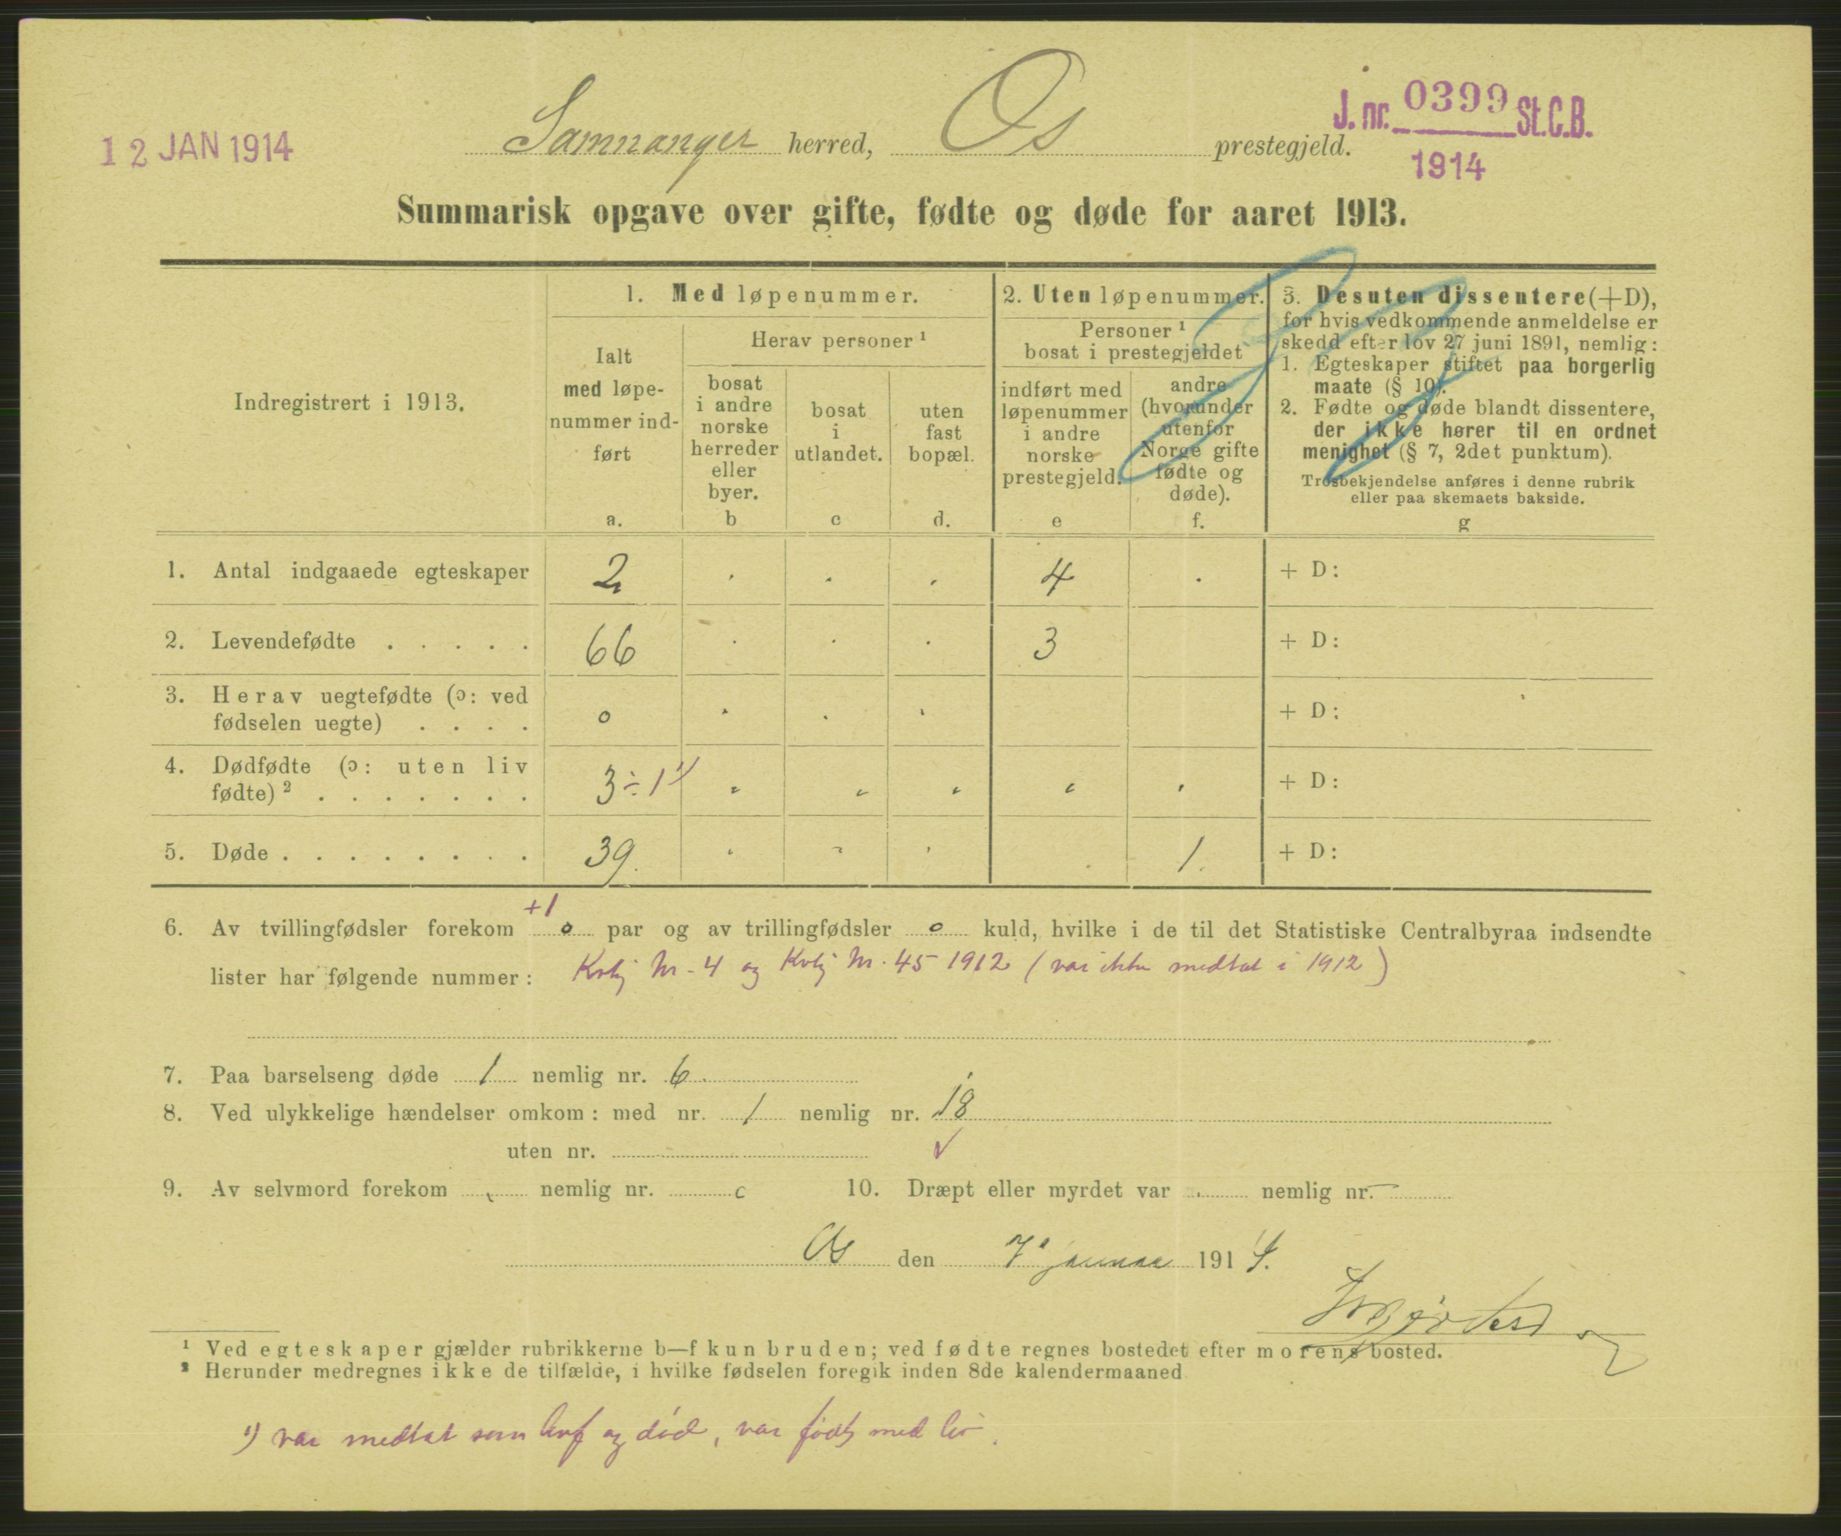 12 JAN 1914
Samnanger herred, Os prestegjeld.
J. nr. 0399 St.C.B.
1914
Summarisk opgave over gifte, fødte og døde for aaret 1913.
Indregistrert i 1913.
1. Med løpenummer.
Ialt
med løpe-
nummer ind-
ført
a.
Herav personer ¹
bosat
i andre
norske
herreder
eller
byer.
b
bosat
i
utlandet.
c
uten
fast
bopæl.
d.
2. Uten løpenummer.
Personer ¹
bosat i prestegjeldet
indført med
løpenummer
i andre
norske
prestegjeld.
e
andre
(hvorunder
utenfor
Norge gifte
fødte og
døde).
f.
3. Desuten dissentere (+D),
for hvis vedkommende anmeldelse er
skedd efter lov 27 juni 1891, nemlig:
1. Egteskaper stiftet paa borgerlig
maate (§ 10).
2. Fødte og døde blandt dissentere,
der ikke hører til en ordnet
menighet (§ 7, 2det punktum).
Trosbekjendelse anføres i denne rubrik
eller paa skemaets bakside.
g
1. Antal indgaaede egteskaper 2 . . . 4 . + D:
2. Levendefødte . . . . . 66 . . . 3 + D:
3. Herav uegtefødte (ɔ: ved
fødselen uegte) . . . . o . . . + D:
4. Dødfødte (ɔ: uten liv
fødte) ² . . . . . . . 3 ÷ 1 ¹) " " " " " + D:
5. Døde . . . . . . . . 39. " " " . 1. + D:
+1
6. Av tvillingfødsler forekom o par og av trillingfødsler o kuld, hvilke i de til det Statistiske Centralbyraa indsendte
lister har følgende nummer: Kvkj Nr. 4 og Kvkj Nr. 45 1912 (var ikke medtat i 1912)
7. Paa barselseng døde 1 nemlig nr. 6.
8. Ved ulykkelige hændelser omkom: med nr. 1 nemlig nr. 18
uten nr. ✓
9. Av selvmord forekom nemlig nr. 10. Dræpt eller myrdet var . nemlig nr. —
Os den 7' januar 1914.
¹ Ved egteskaper gjælder rubrikkerne b—f kun bruden; ved fødte regnes bostedet efter morens bosted.
² Herunder medregnes ikke de tilfælde, i hvilke fødselen foregik inden 8de kalendermaaned
¹) var medtat som og død, var født med liv.